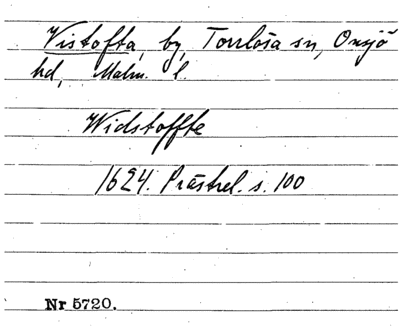 Vistofta, by, Torrlösa sn, Onsjö
hd, Malm. l.
Widstoffte
1624. Prästrel. s. 100
Nr 5720.